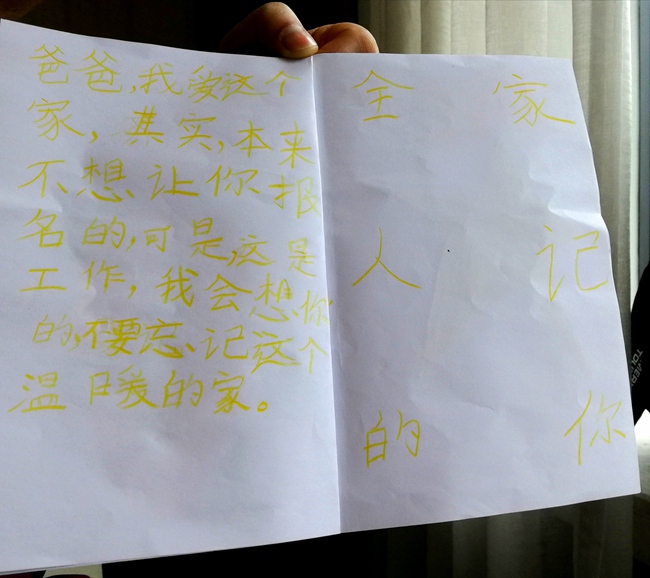 爸爸,我爱这个
家,其实,本来
不想让你报
名的,可是,这是
工作,我会想你
的,不要忘、记这个
温暖的家。
全家
人记
的你